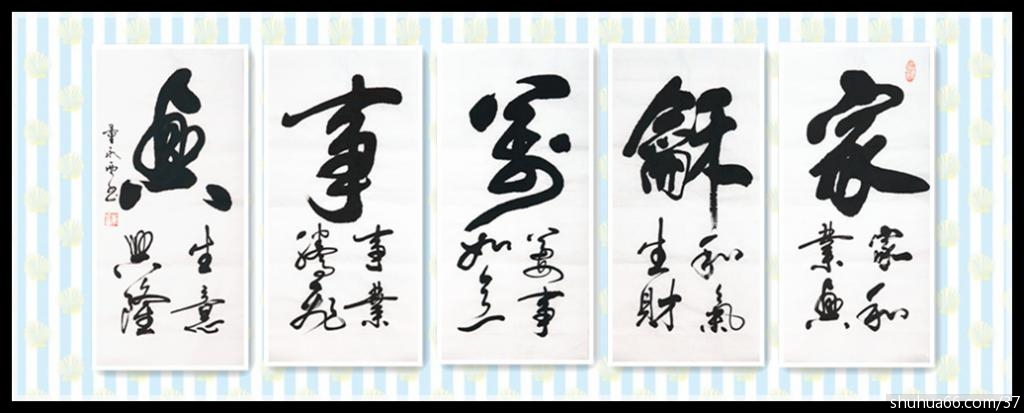 家
家和
業興
龢
和氣
生財
萬
萬事
如意
事
事業
騰飛
興
生意
興隆
shuhua66.com/57